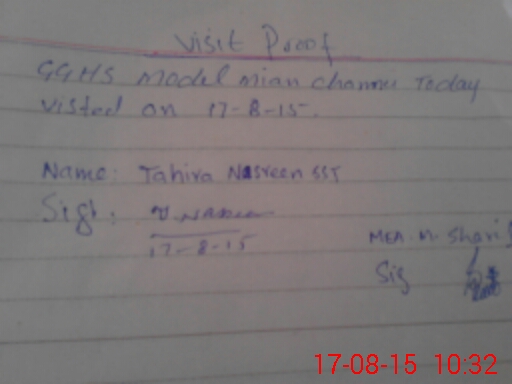 Visit Proof
GGHS Model mian channu Today
visted on 17-8-15.
Name: Tahira Nasreen SST
Sigt:
17-8-15
MEA. M. Sharif
Sig
17-08-15 10:32